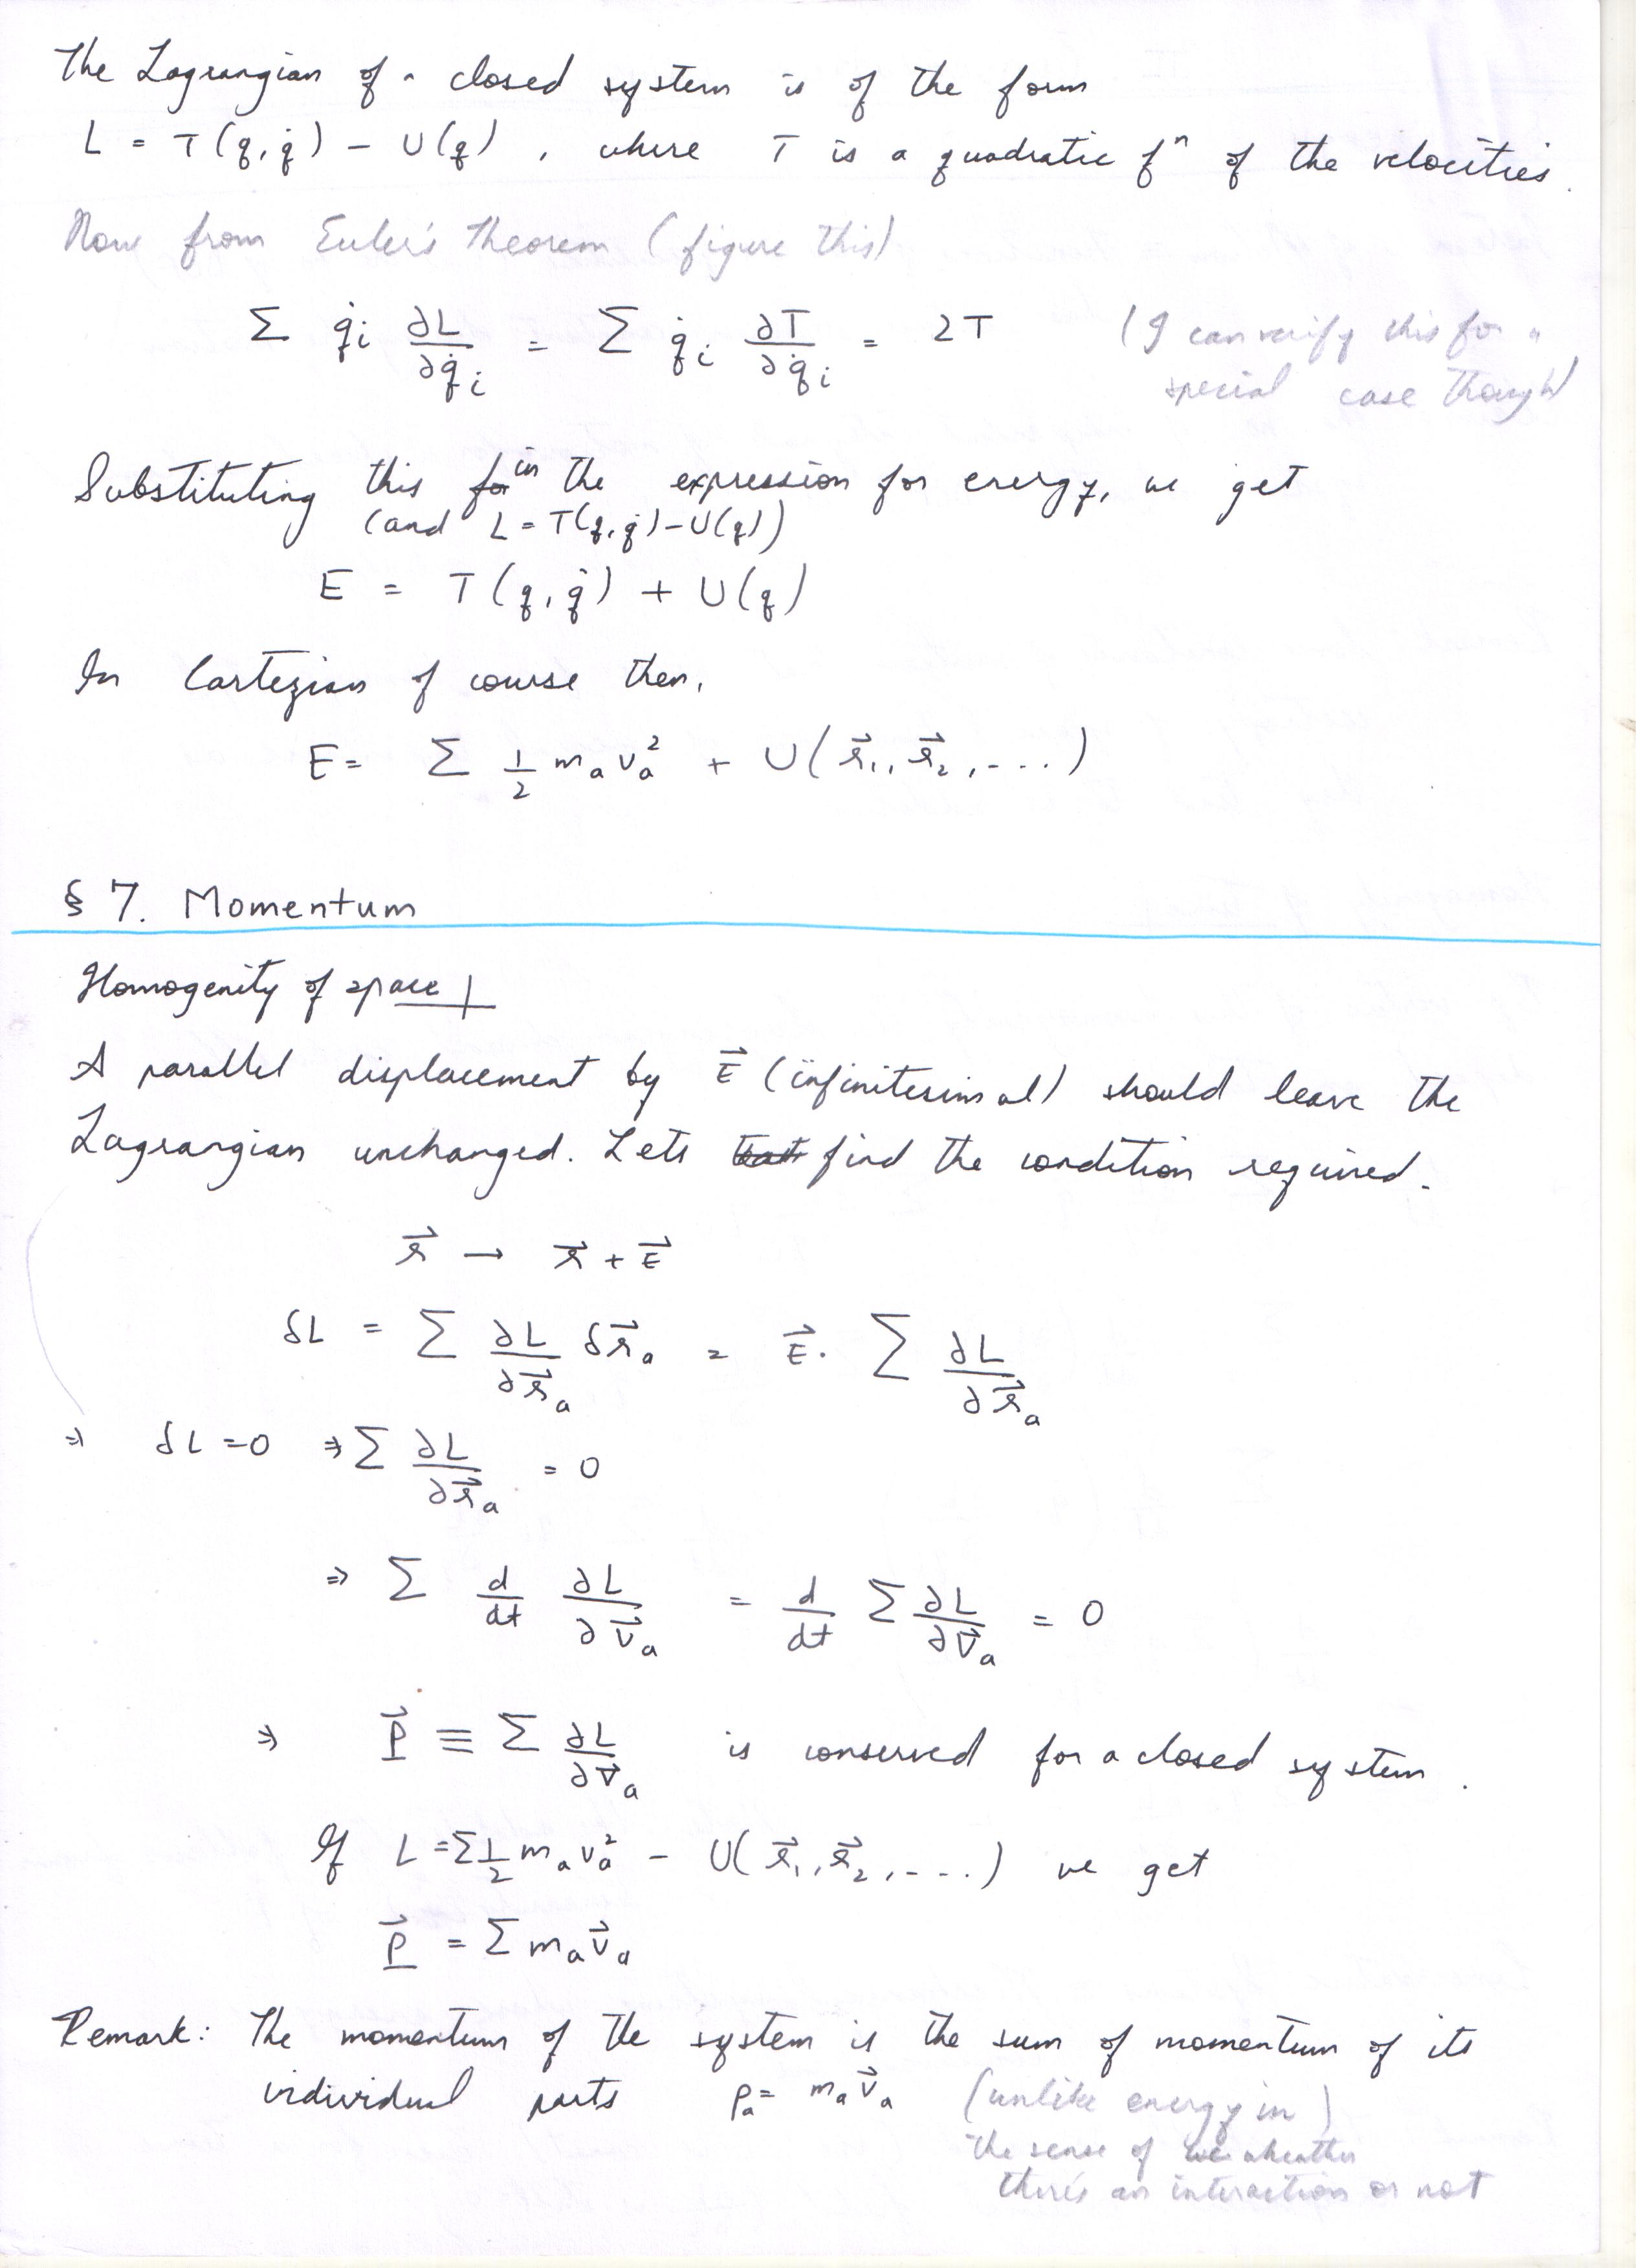 The Lagrangian of a closed system is of the form
L = T(q, q̇) − U(q) , where T is a quadratic fⁿ of the velocities.
Now from Euler's theorem (figure this)
Σ q̇ᵢ ∂L/∂q̇ᵢ = Σ q̇ᵢ ∂T/∂q̇ᵢ = 2T (I can verify this for a
special case though)
Substituting this for in the expression for energy, we get
(and L = T(q, q̇) − U(q))
E = T(q, q̇) + U(q)
In Cartezian of course then,
E = Σ ½ mₐ vₐ² + U(r⃗₁, r⃗₂, ....)
§ 7. Momentum
Homogenity of space
A parallel displacement by ε⃗ (infinitesimal) should leave the
Lagrangian unchanged. Lets find the condition required.
r⃗ → r⃗ + ε⃗
δL = Σ ∂L/∂r⃗ₐ δr⃗ₐ = ε⃗ · Σ ∂L/∂r⃗ₐ
⇒ δL = 0 ⇒ Σ ∂L/∂r⃗ₐ = 0
⇒ Σ d/dt ∂L/∂v⃗ₐ = d/dt Σ ∂L/∂v⃗ₐ = 0
⇒ P⃗ ≡ Σ ∂L/∂v⃗ₐ is conserved for a closed system.
If L = Σ ½ mₐ vₐ² − U(r⃗₁, r⃗₂, ....) we get
P⃗ = Σ mₐ v⃗ₐ
Remark: The momentum of the system is the sum of momentum of its
individual parts pₐ = mₐ v⃗ₐ (unlike energy in)
the sense of wheather
there's an interaction or not